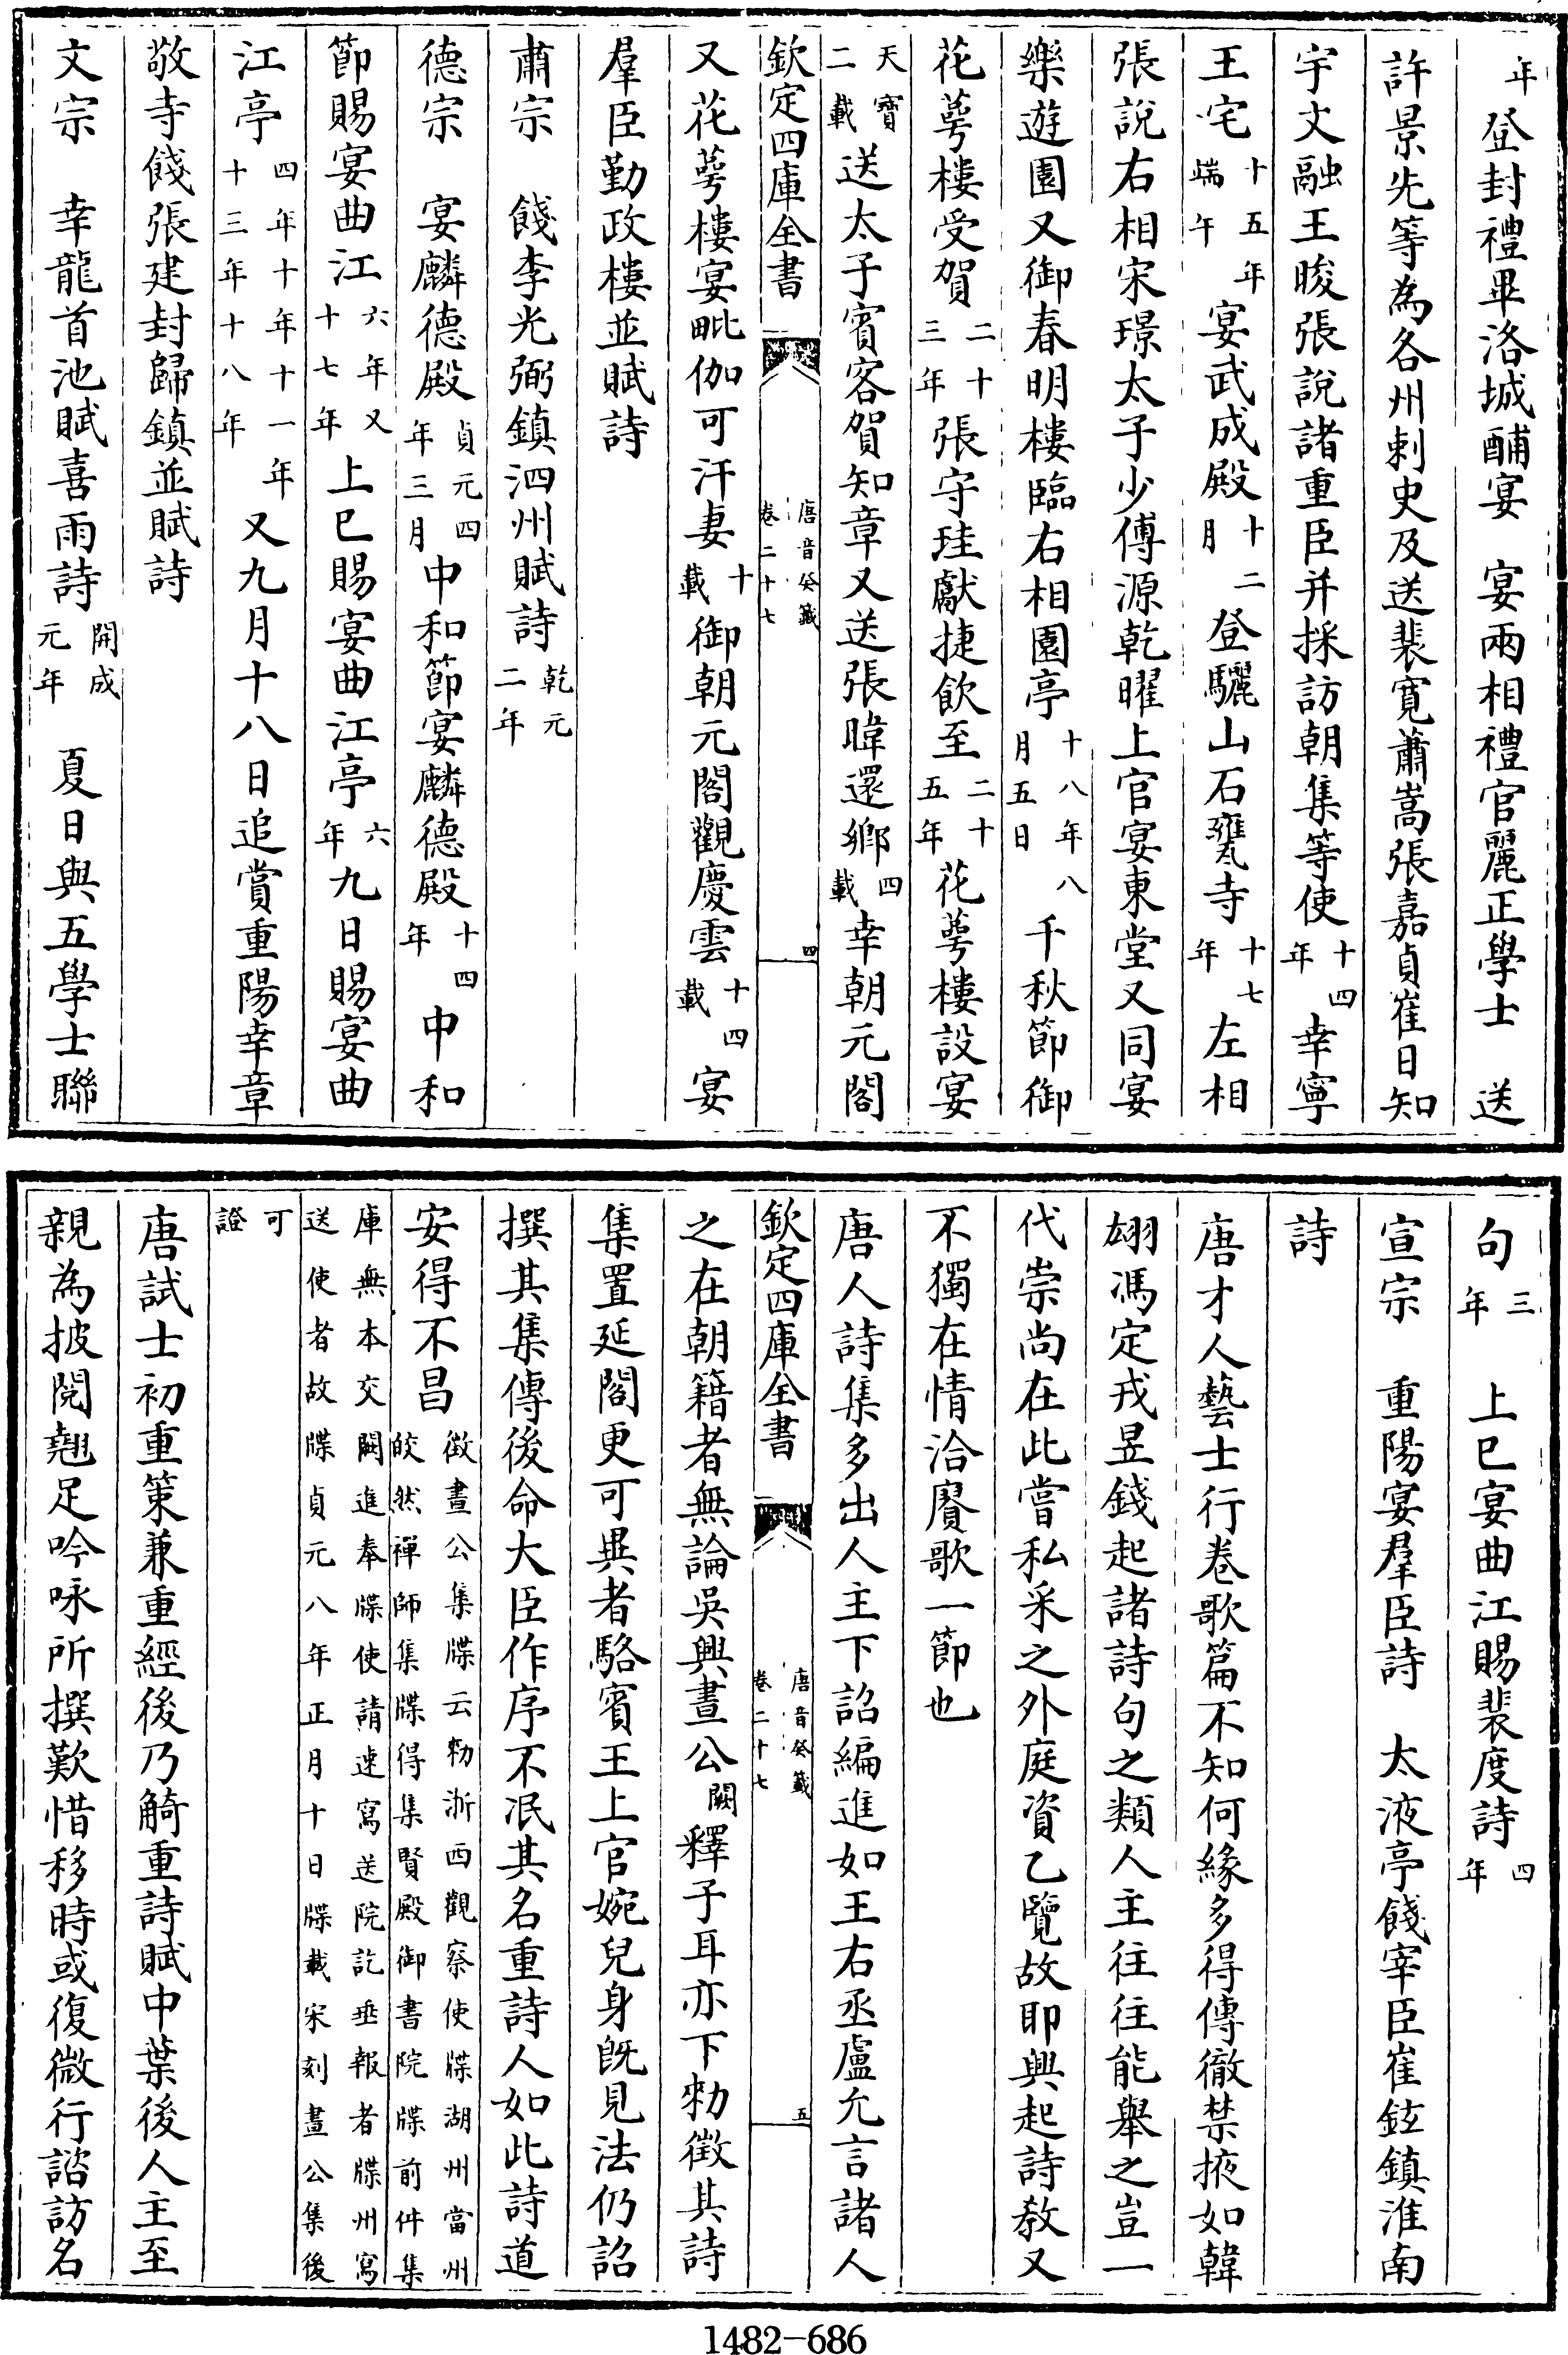 年登封禮畢洛城酺宴　宴兩相禮官麗正學士　送
許景先等為各州刺史及送裴寛蕭嵩張嘉貞崔日知
宇文融王晙張說諸重臣并採訪朝集等使十四年幸寧
王宅十五年端午宴武成殿十二月登驪山石甕寺十七年左相
張說右相宋璟太子少傅源乾曜上官宴東堂又同宴
樂遊園又御春明樓臨右相園亭十八年八月五日千秋節御
花萼樓受賀二十三年張守珪獻捷飲至二十五年花萼樓設宴
天寶二載送太子賓客賀知章又送張暐還鄉四載幸朝元閣
欽定四庫全書　唐音癸籤卷二十七　四
又花萼樓宴毗伽可汗妻十載御朝元閣觀慶雲十四載宴
羣臣勤政樓並賦詩
肅宗　餞李光弼鎮泗州賦詩乾元二年
德宗　宴麟德殿貞元四年三月中和節宴麟德殿十四年中和
節賜宴曲江六年又十七年上巳賜宴曲江亭六年九日賜宴曲
江亭四年十年十一年十三年十八年又九月十八日追賞重陽幸章
敬寺餞張建封歸鎮並賦詩
文宗　幸龍首池賦喜雨詩開成元年　夏日與五學士聯
句三年　上巳宴曲江賜裴度詩四年
宣宗　重陽宴羣臣詩　太液亭餞宰臣崔鉉鎮淮南
詩
唐才人藝士行卷歌篇不知何緣多得傳徹禁掖如韓
翃馮定戎昱錢起諸詩句之類人主往往能舉之豈一
代崇尚在此嘗私采之外庭資乙覽故耶興起詩教又
不獨在情洽賡歌一節也
唐人詩集多出人主下詔編進如王右丞盧允言諸人
欽定四庫全書　唐音癸籤卷二十七　五
之在朝籍者無論吳興晝公闕釋子耳亦下勑徵其詩
集置延閣更可異者駱賓王上官婉兒身既見法仍詔
撰其集傳後命大臣作序不泯其名重詩人如此詩道
安得不昌徵晝公集牒云勑浙西觀察使牒湖州當州皎然禪師集牒得集賢殿御書院牒前件集
庫無本交闕進奉牒使請速寫送院訖垂報者牒州寫送使者故牒貞元八年正月十日牒載宋刻晝公集後
可證
唐試士初重策兼重經後乃觭重詩賦中葉後人主至
親為披閱翹足吟咏所撰歎惜移時或復微行諮訪名
1482-686